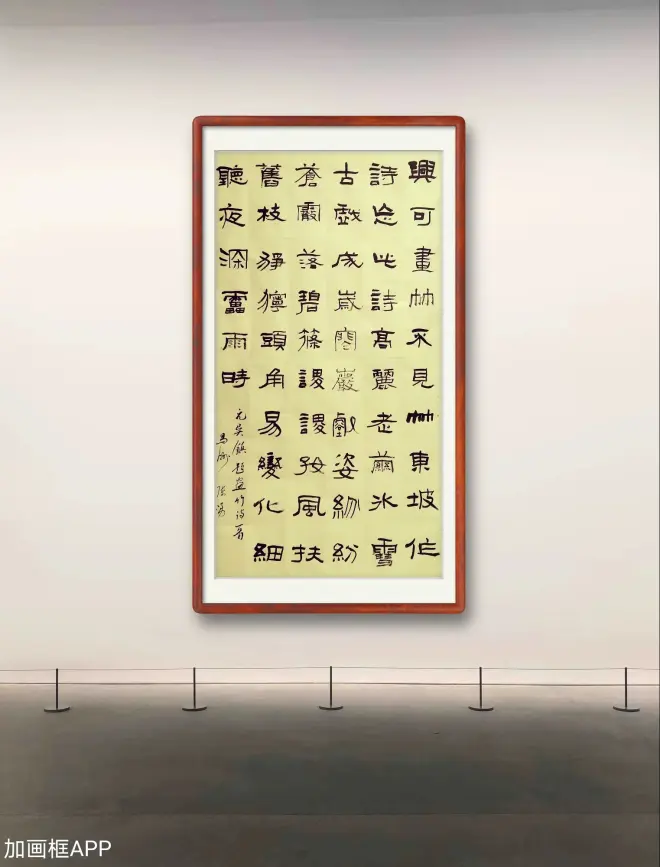 興可畫竹不見竹東坡作
詩忘此詩高麗老繭冰雪
古戲成歲寒巖壑姿紛紛
蒼落碧謖謖好風扶
舊枝猙獰頭角易變化細
聽夜深雷雨時
元吳鎮題畫竹詩一首
加画框APP